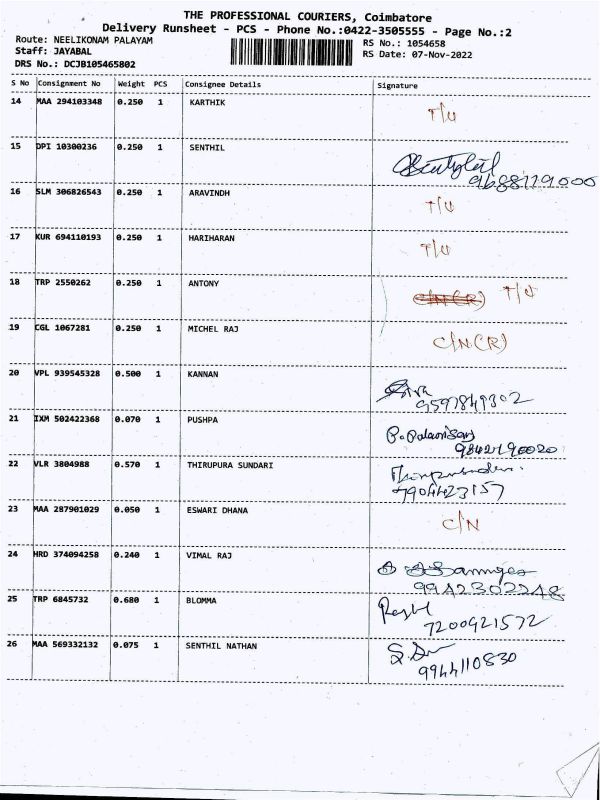 THE PROFESSIONAL COURIERS, Coimbatore
Delivery Runsheet - PCS - Phone No.:0422-3505555 - Page No.:2
Route: NEELIKONAM PALAYAM
RS No.: 1054658
Staff: JAYABAL
RS Date: 07-Nov-2022
DRS No.: DCJB105465802
S No Consignment No Weight PCS Consignee Details Signature
14 MAA 294103348 0.250 1 KARTHIK T/U
15 DPI 10300236 0.250 1 SENTHIL
9688779000
16 SLM 306826543 0.250 1 ARAVINDH T/U
17 KUR 694110193 0.250 1 HARIHARAN T/U
18 TRP 2550262 0.250 1 ANTONY C/N(R) T/U
19 CGL 1067281 0.250 1 MICHEL RAJ C/N(R)
20 VPL 939545328 0.500 1 KANNAN
9597849302
21 IXM 502422368 0.070 1 PUSHPA P.Palanisamy
9842190020
22 VLR 3804988 0.570 1 THIRUPURA SUNDARI
7904423157
23 MAA 287901029 0.050 1 ESWARI DHANA C/N
24 HRD 374094258 0.240 1 VIMAL RAJ
9942302248
25 TRP 6845732 0.680 1 BLOMMA
7200921572
26 MAA 569332132 0.075 1 SENTHIL NATHAN
9944110830